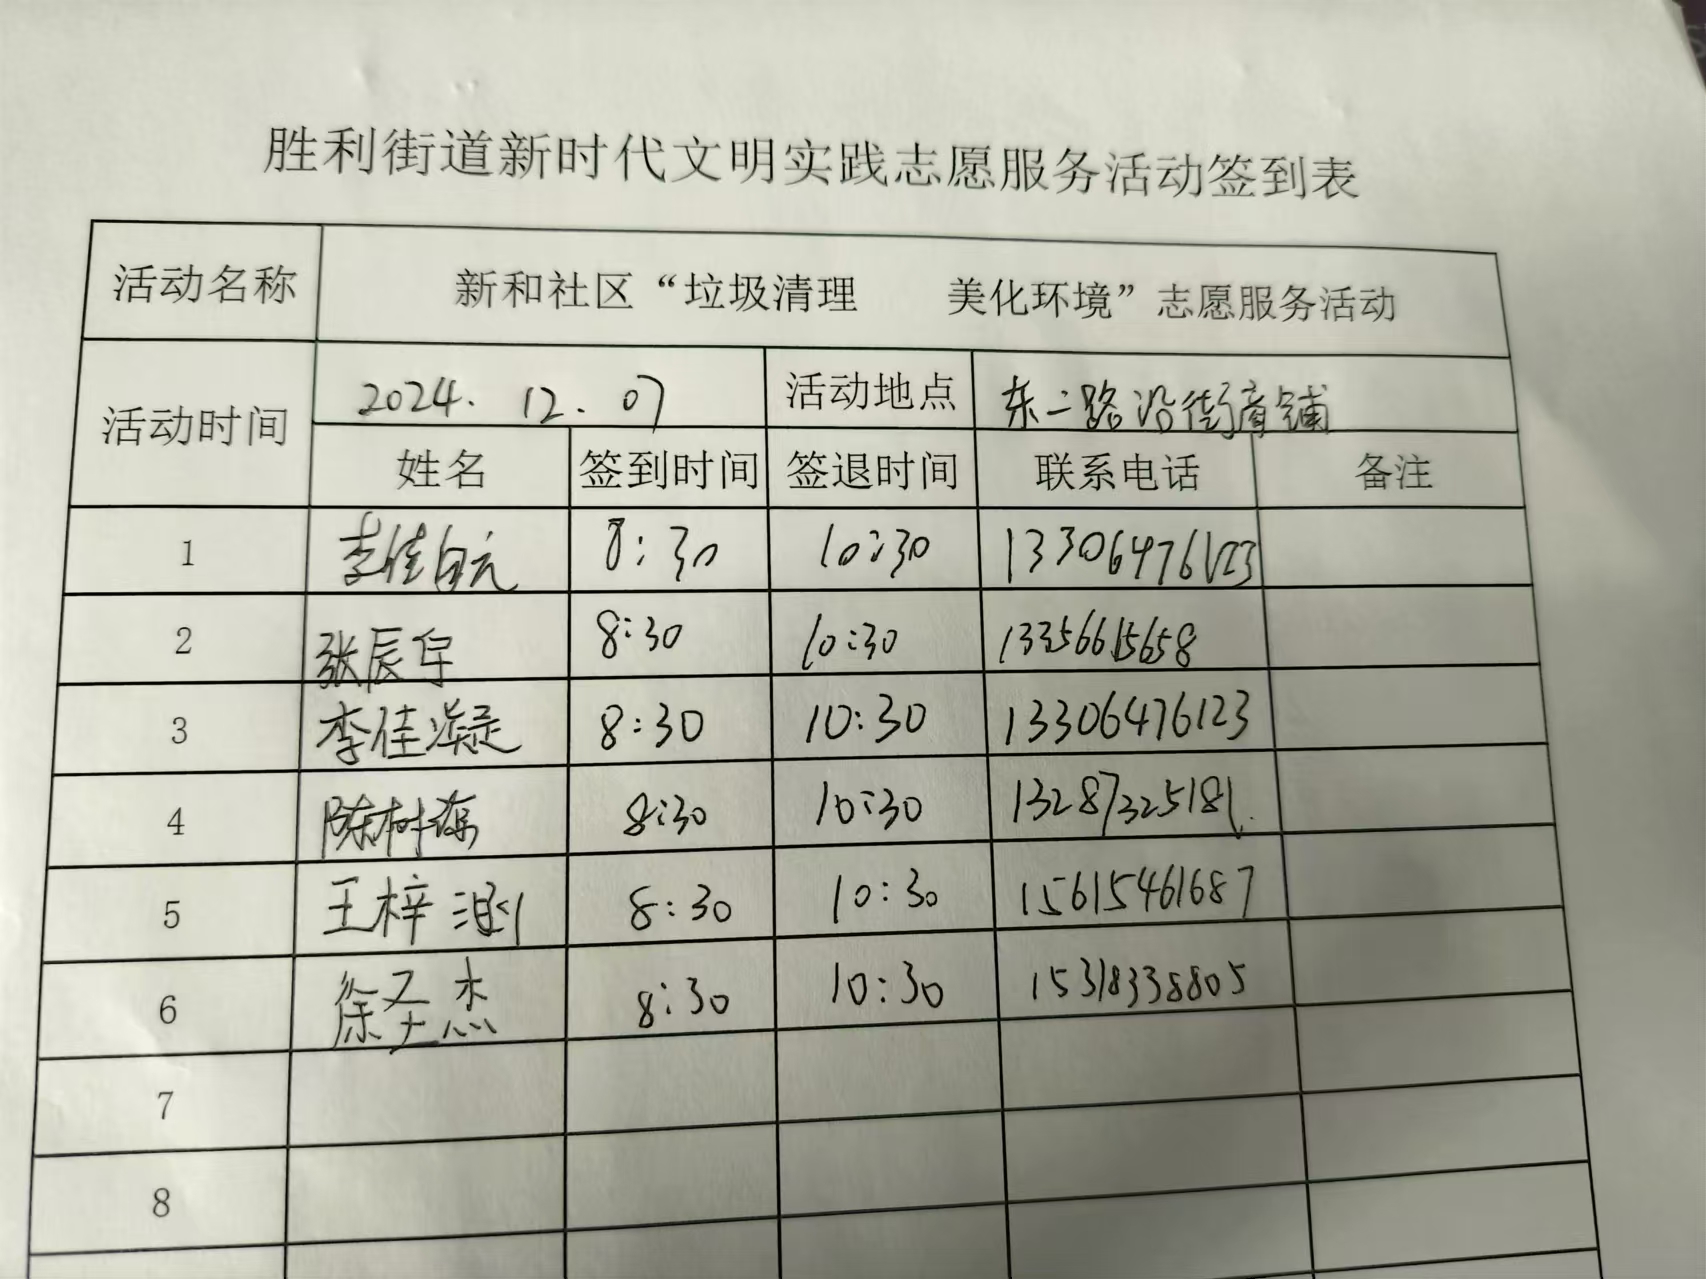 胜利街道新时代文明实践志愿服务活动签到表
活动名称 新和社区“垃圾清理 美化环境”志愿服务活动
活动时间 2024.12.07 活动地点 东二路沿街商铺
姓名 签到时间 签退时间 联系电话 备注
1 李佳航 8:30 10:30 13306476123
2 张辰宇 8:30 10:30 13356615658
3 李佳凝 8:30 10:30 13306476123
4 陈树 8:30 10:30 13287325181
5 王梓涵 8:30 10:30 15615461687
6 徐圣杰 8:30 10:30 15318338805
7
8